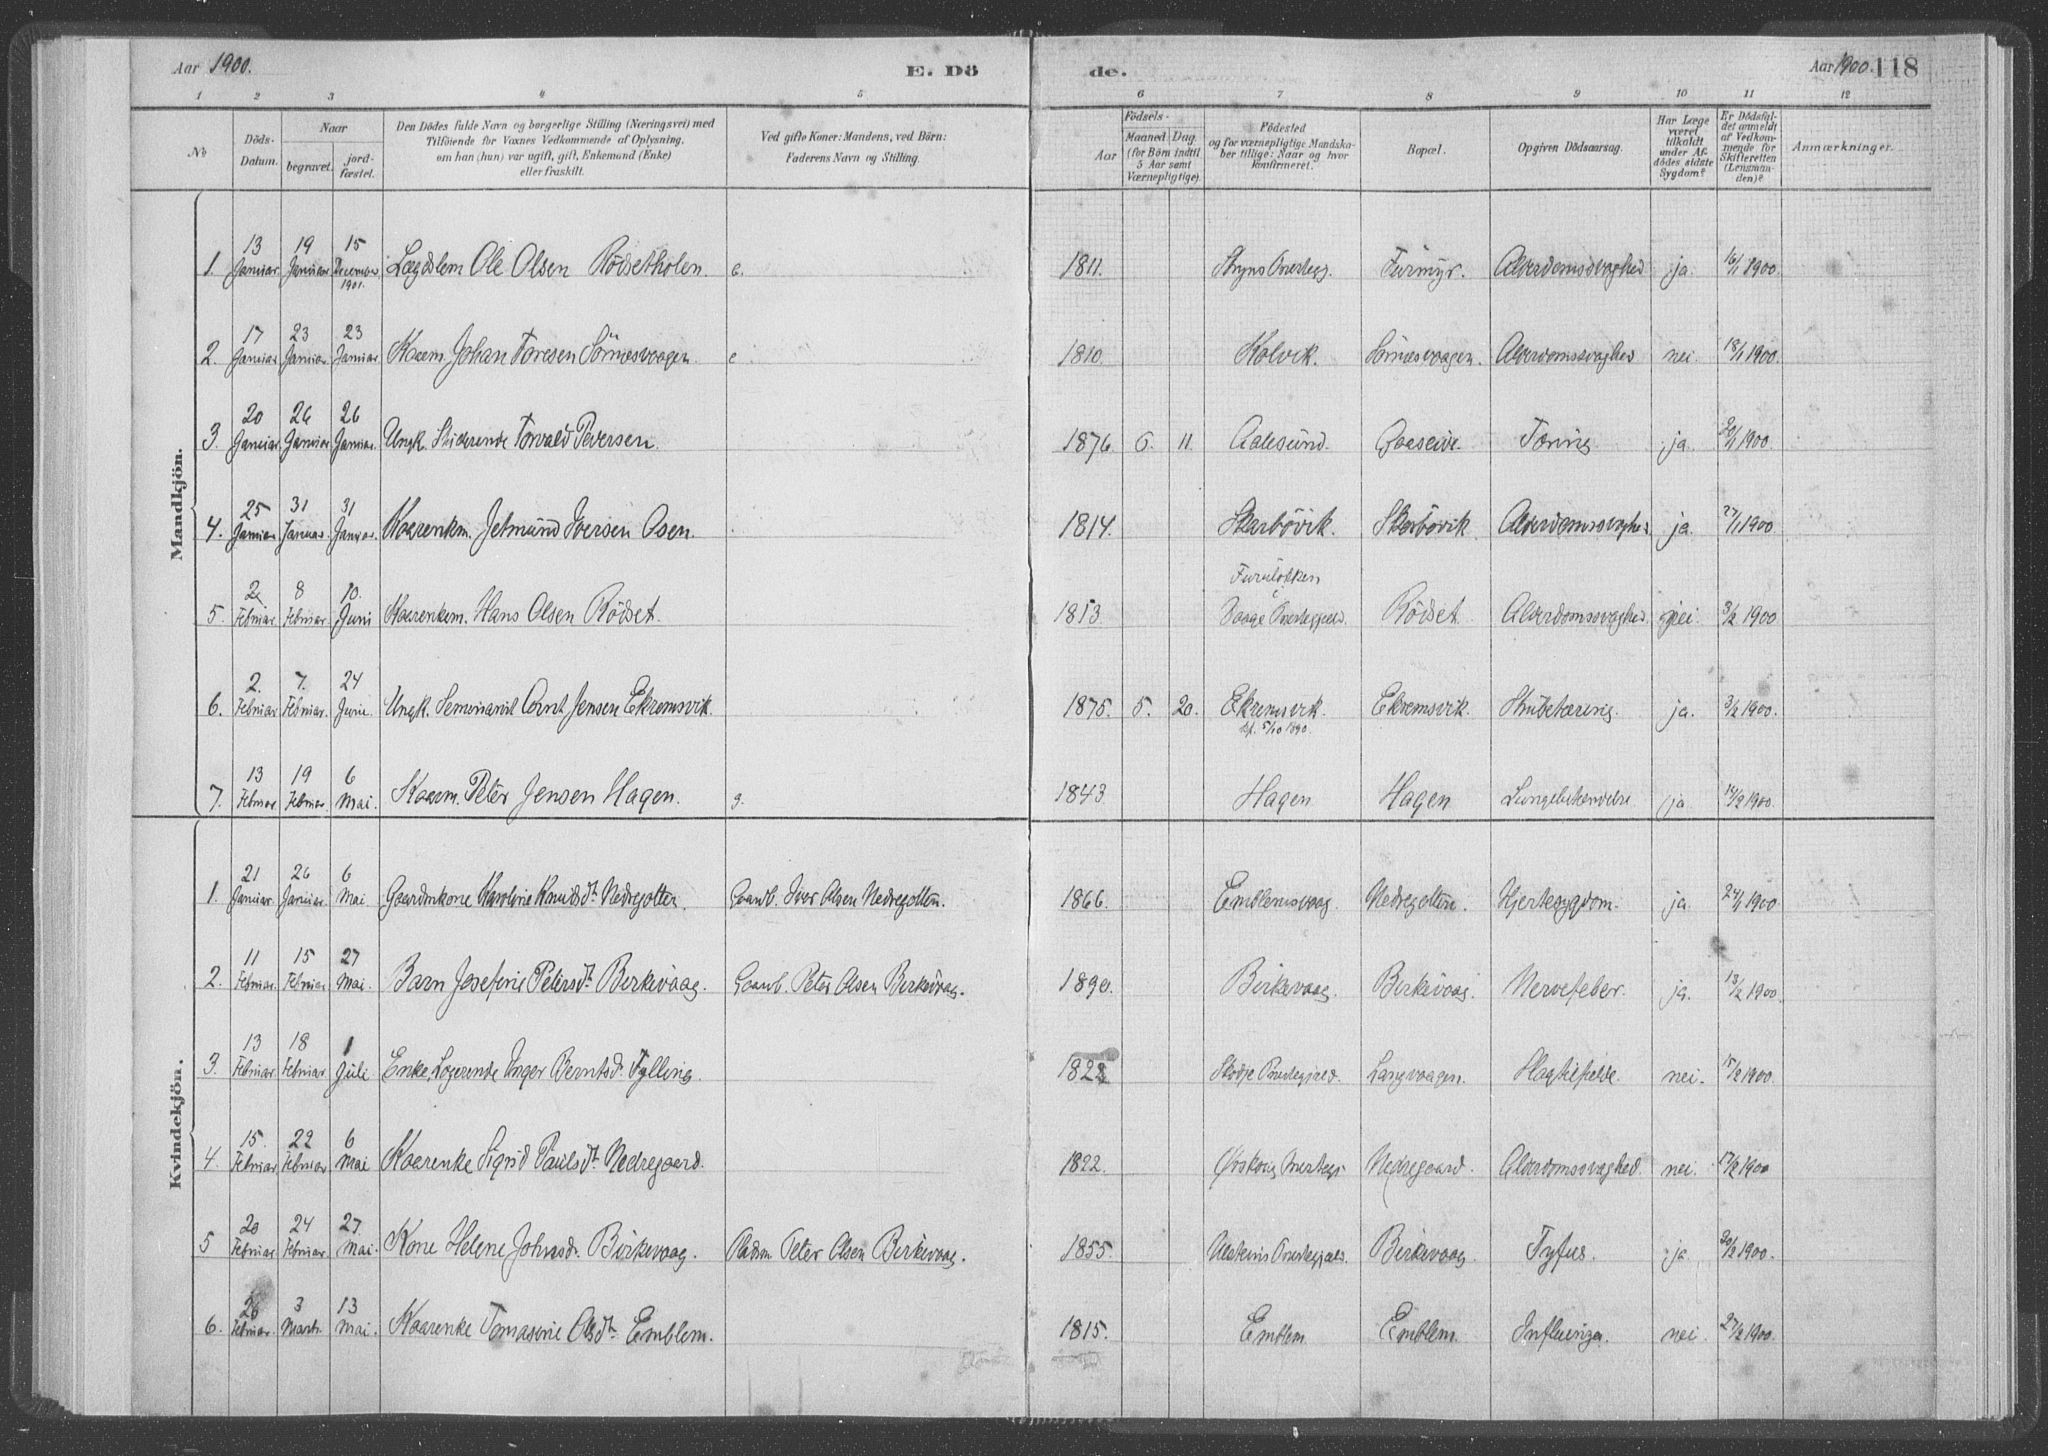 Aar 1900. E. Dö de. Aar 1900. 118
1 2 3 4 5 6 7 8 9 10 11 12
No
Döds-Datum.
Naar
begravet.
jord-fæstet.
Den Dödes fulde Navn og borgerlige Stilling (Næringsvei) med
Tilföiende for Voxnes Vedkommende af Oplysning,
om han (hun) var ugift, gift, Enkemand (Enke)
eller fraskilt.
Ved gifte Koner: Mandens, ved Börn:
Faderens Navn og Stilling.
Födsels-
Aar
Maaned Dag
(for Börn indtil
5 Aar samt
Værnepligtige).
Födested
og for værnepligtige Mandska-
ber tillige: Naar og hvor
konfirmeret.
Bopæl.
Opgiven Dödsaarsag.
Har Læge
været
tilkaldt
under Af-
dödes sidste
Sygdom?
Er Dödsfal-
det anmeldt
af Vedkom-
mende for
Skifteretten
(Lensman-
den)?
Anmærkninger.
Mandkjön.
1. 13 Januar 19 Januar 15 December 1901. Lægdslem Ole Olsen Rödsetholen. e. 1811. Furmyr. Alderdomssvaghed ja. 16/1 1900.
2. 17 Januar 23 Januar 23 Januar Kaarm. Johan Toresen Sörnesvaagen. e 1810. Kolvik. Sörnesvaagen. Alderdomssvaghed nei. 18/1 1900.
3. 20 Januar 26 Januar 26 Januar. Ungk. Studerende Torvald Petersen. 1876 6. 11. Aalesund. Tæring ja. 20/1 1900.
4. 25 Januar 31 Januar 31 Januar Kaarenkm. Jetmund Iversen Osen. 1814. Skarbövik. Skarbövik. Alderdomssvaghed ja. 27/1 1900.
5. 2 Februar 8 Februar 10. Juni Kaarenkem. Hans Olsen Rödset. 1813 Rödset. Alderdomssvaghed nei. 3/2 1900
6. 2. Februar 7. Februar. 24 Juni. Ungk. Seminarist Arnt Jensen Ekremsvik. 1875. 5. 20. Ekremsvik. kf. 5/10 1890. Ekremsvik. Strubetæring. ja. 3/2 1900.
7. 13 Februar 19 Februar 6 Mai. Kaarm. Peter Jensen Hagen. g. 1843 Hagen. Hagen Lungebetændelse ja. 14/2 1900.
Kvindekjön.
1. 21 Januar 26 Januar 6 Mai Gaardmkone Karoline Knudsdt. Nedregotten. Gaardb. Iver Olsen Nedregotten. 1866. Emblemsvaag. Nedregotten. Hjertesygdom. ja. 24/1 1900
2. 11 Februar 15 Februar 27 Mai Barn Josefine Petersdt. Birkevaag. Gaardb. Peter Olsen Birkevaag. 1890. Birkevaag. Birkevaag. Nervefeber. ja. 13/2 1900.
3. 13 Februar 18 Februar 1 Juli Enke, Logerende Inger Berntsd. Fylling. Skodje Præstegjeld. Langvaagen. nei. 15/2 1900.
4. 15. Februar 22 Februar 6 Mai Kaarenke Sigrid Paulsdt. Nedregaard. 1822. Nedregaard. Alderdomssvaghed. nei. 17/2 1900
5 20 Februar 24 Februar 27 Mai. Kone Helene Johnsd. Birkevaag. Peter Olsen Birkevaag. 1855. Birkevaag. Tyfus. ja 20/2 1900.
6. 26 Februar 3 Marts. 13 Mai. Kaarenke Tomasine Olsdt. Emblem. 1815. Emblem. Emblem. Influenza. nei. 27/2 1900.